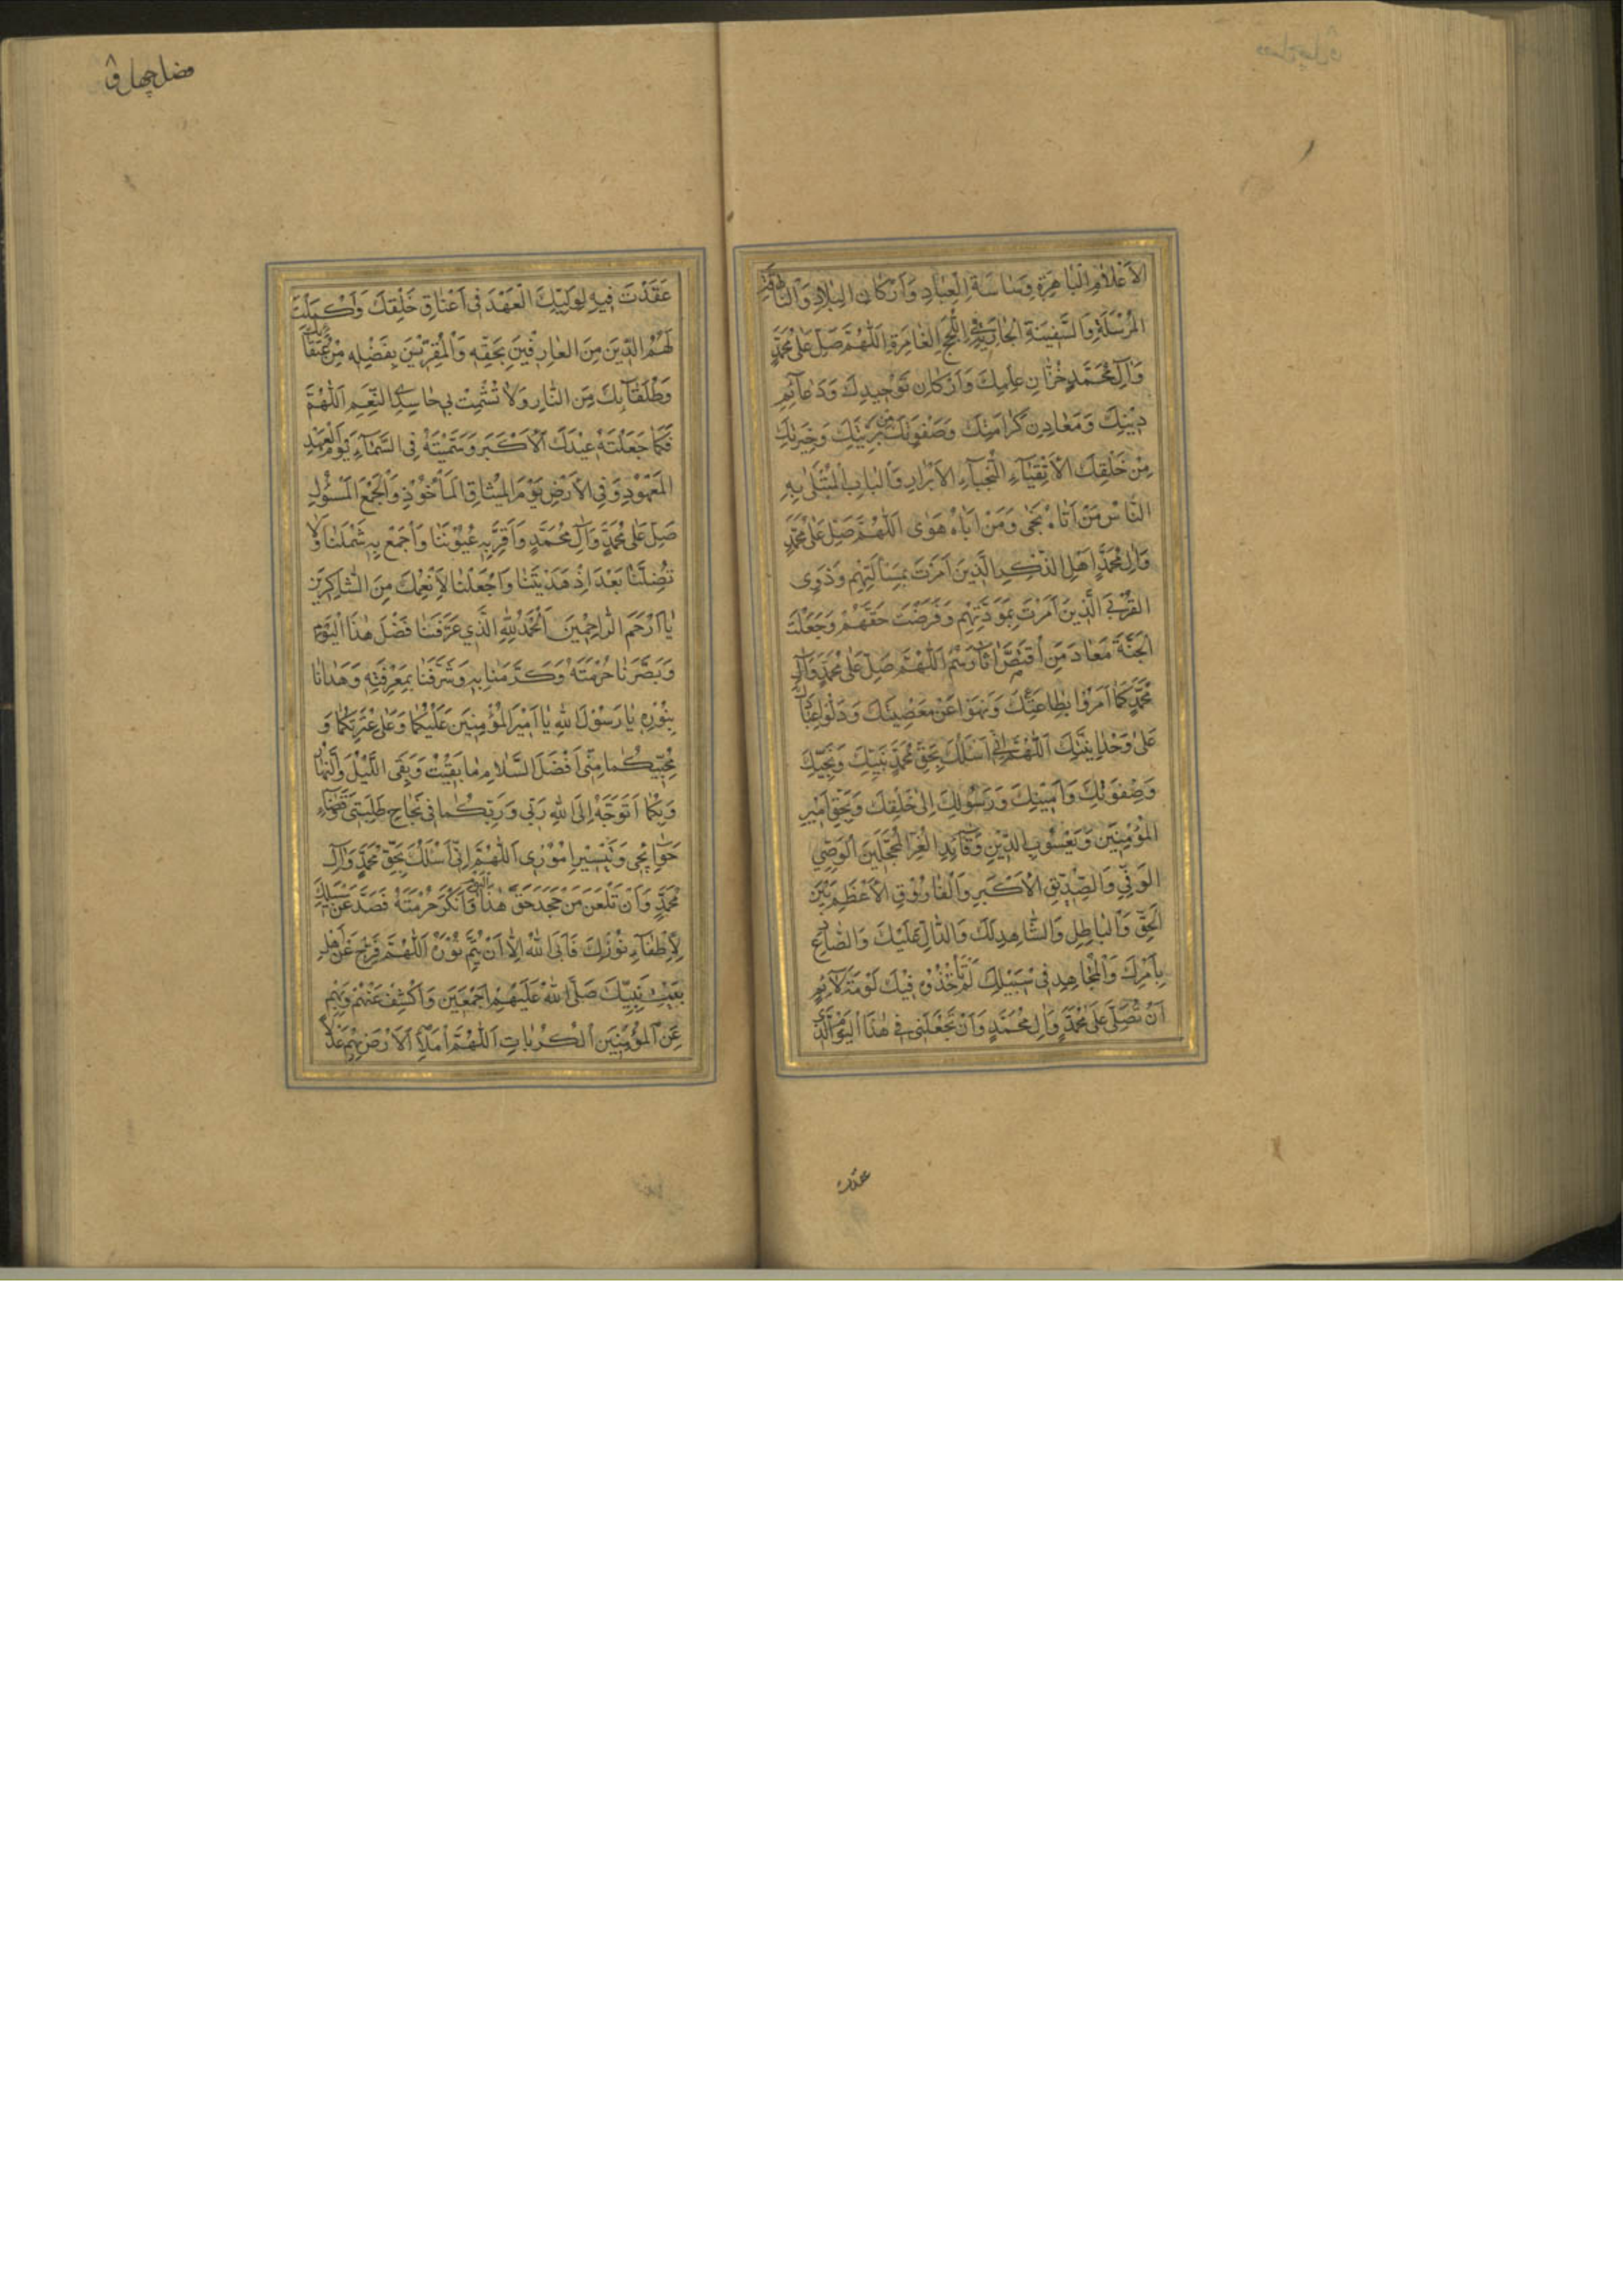 الْأَعْلَامِ الْبَاهِرَةِ وَسَاسَةِ الْعِبَادِ وَأَرْكَانِ الْبِلَادِ وَالنَّاقَةِ
الْمُرْسَلَةِ وَالسَّفِينَةِ الْجَارِيَةِ فِي اللُّجَجِ الْغَامِرَةِ اَللّٰهُمَّ صَلِّ عَلٰى مُحَمَّدٍ
وَآلِ مُحَمَّدٍ خُزَّانِ عِلْمِكَ وَأَرْكَانِ تَوْحِيدِكَ وَدَعَائِمِ
دِينِكَ وَمَعَادِنِ كَرَامَتِكَ وَصَفْوَتِكَ مِنْ بَرِيَّتِكَ وَخِيَرَتِكَ
مِنْ خَلْقِكَ الْأَتْقِيَاءِ النُّجَبَاءِ الْأَبْرَارِ وَالْبَابِ الْمُبْتَلٰى بِهِ
النَّاسُ مَنْ أَتَاهُ نَجٰى وَمَنْ أَبَاهُ هَوٰى اَللّٰهُمَّ صَلِّ عَلٰى مُحَمَّدٍ
وَآلِ مُحَمَّدٍ أَهْلِ الذِّكْرِ الَّذِينَ أَمَرْتَ بِمَسْأَلَتِهِمْ وَذَوِي
الْقُرْبَى الَّذِينَ أَمَرْتَ بِمَوَدَّتِهِمْ وَفَرَضْتَ حَقَّهُمْ وَجَعَلْتَ
الْجَنَّةَ مَعَادَ مَنِ اقْتَصَّ آثَارَهُمْ اَللّٰهُمَّ صَلِّ عَلٰى مُحَمَّدٍ وَآلِ
مُحَمَّدٍ كَمَا أَمَرُوا بِطَاعَتِكَ وَنَهَوْا عَنْ مَعْصِيَتِكَ وَدَلُّوا عِبَادَكَ
عَلٰى وَحْدَانِيَّتِكَ اَللّٰهُمَّ إِنِّي أَسْئَلُكَ بِحَقِّ مُحَمَّدٍ نَبِيِّكَ وَنَجِيِّكَ
وَصَفْوَتِكَ وَأَمِينِكَ وَرَسُولِكَ إِلٰى خَلْقِكَ وَبِحَقِّ أَمِيرِ
الْمُؤْمِنِينَ وَيَعْسُوبِ الدِّينِ وَقَائِدِ الْغُرِّ الْمُحَجَّلِينَ الْوَصِيِّ
الْوَفِيِّ وَالصِّدِّيقِ الْأَكْبَرِ وَالْفَارُوقِ الْأَعْظَمِ بَيْنَ
الْحَقِّ وَالْبَاطِلِ وَالشَّاهِدِ لَكَ وَالدَّالِّ عَلَيْكَ وَالصَّادِعِ
بِأَمْرِكَ وَالْمُجَاهِدِ فِي سَبِيلِكَ لَمْ تَأْخُذْهُ فِيكَ لَوْمَةُ لَائِمٍ
أَنْ تُصَلِّيَ عَلٰى مُحَمَّدٍ وَآلِ مُحَمَّدٍ وَأَنْ تَجْعَلَنِي فِي هٰذَا الْيَوْمِ الَّذِي
عقدت
عَقَدْتَ فِيهِ لِوَلِيِّكَ الْعَهْدَ فِي أَعْنَاقِ خَلْقِكَ وَأَكْمَلْتَ
لَهُمُ الدِّينَ مِنَ الْعَارِفِينَ بِحَقِّهِ وَالْمُقِرِّينَ بِفَضْلِهِ مِنْ عُتَقَائِكَ
وَطُلَقَائِكَ مِنَ النَّارِ وَلَا تُشْمِتْ بِي حَاسِدِي النِّعَمِ اَللّٰهُمَّ
فَكَمَا جَعَلْتَهُ عِيدَكَ الْأَكْبَرَ وَسَمَّيْتَهُ فِي السَّمَاءِ يَوْمَ الْعَهْدِ
الْمَعْهُودِ وَفِي الْأَرْضِ يَوْمَ الْمِيثَاقِ الْمَأْخُوذِ وَالْجَمْعِ الْمَسْؤُلِ
صَلِّ عَلٰى مُحَمَّدٍ وَآلِ مُحَمَّدٍ وَأَقْرِرْ بِهِ عُيُونَنَا وَاجْمَعْ بِهِ شَمْلَنَا وَلَا
تُضِلَّنَا بَعْدَ إِذْ هَدَيْتَنَا وَاجْعَلْنَا لِأَنْعُمِكَ مِنَ الشَّاكِرِينَ
يَا أَرْحَمَ الرَّاحِمِينَ اَلْحَمْدُ لِلّٰهِ الَّذِي عَرَّفَنَا فَضْلَ هٰذَا الْيَوْمِ
وَبَصَّرَنَا حُرْمَتَهُ وَكَرَّمَنَا بِهِ وَشَرَّفَنَا بِمَعْرِفَتِهِ وَهَدَانَا
بِنُورِهِ يَا رَسُولَ اللهِ يَا أَمِيرَ الْمُؤْمِنِينَ عَلَيْكُمَا وَعَلٰى عِتْرَتِكُمَا وَ
مُحِبِّيكُمَا مِنِّي أَفْضَلُ السَّلَامِ مَا بَقِيتُ وَبَقِيَ اللَّيْلُ وَالنَّهَارُ
وَبِكُمَا أَتَوَجَّهُ إِلَى اللهِ رَبِّي وَرَبِّكُمَا فِي نَجَاحِ طَلِبَتِي وَقَضَاءِ
حَوَائِجِي وَتَيْسِيرِ أُمُورِي اَللّٰهُمَّ إِنِّي أَسْئَلُكَ بِحَقِّ مُحَمَّدٍ وَآلِ
مُحَمَّدٍ وَأَنْ تَلْعَنَ مَنْ جَحَدَ حَقَّ هٰذَا الْيَوْمِ وَأَنْكَرَ حُرْمَتَهُ فَصَدَّ عَنْ سَبِيلِكَ
لِإِطْفَاءِ نُورِكَ فَأَبَى اللهُ إِلَّا أَنْ يُتِمَّ نُورَهُ اَللّٰهُمَّ فَرِّجْ عَنْ أَهْلِ
بَيْتِ نَبِيِّكَ صَلَّى اللهُ عَلَيْهِمْ أَجْمَعِينَ وَاكْشِفْ عَنْهُمْ وَبِهِمْ
عَنِ الْمُؤْمِنِينَ الْكُرُبَاتِ اَللّٰهُمَّ امْلَأِ الْأَرْضَ بِهِمْ عَدْلًا